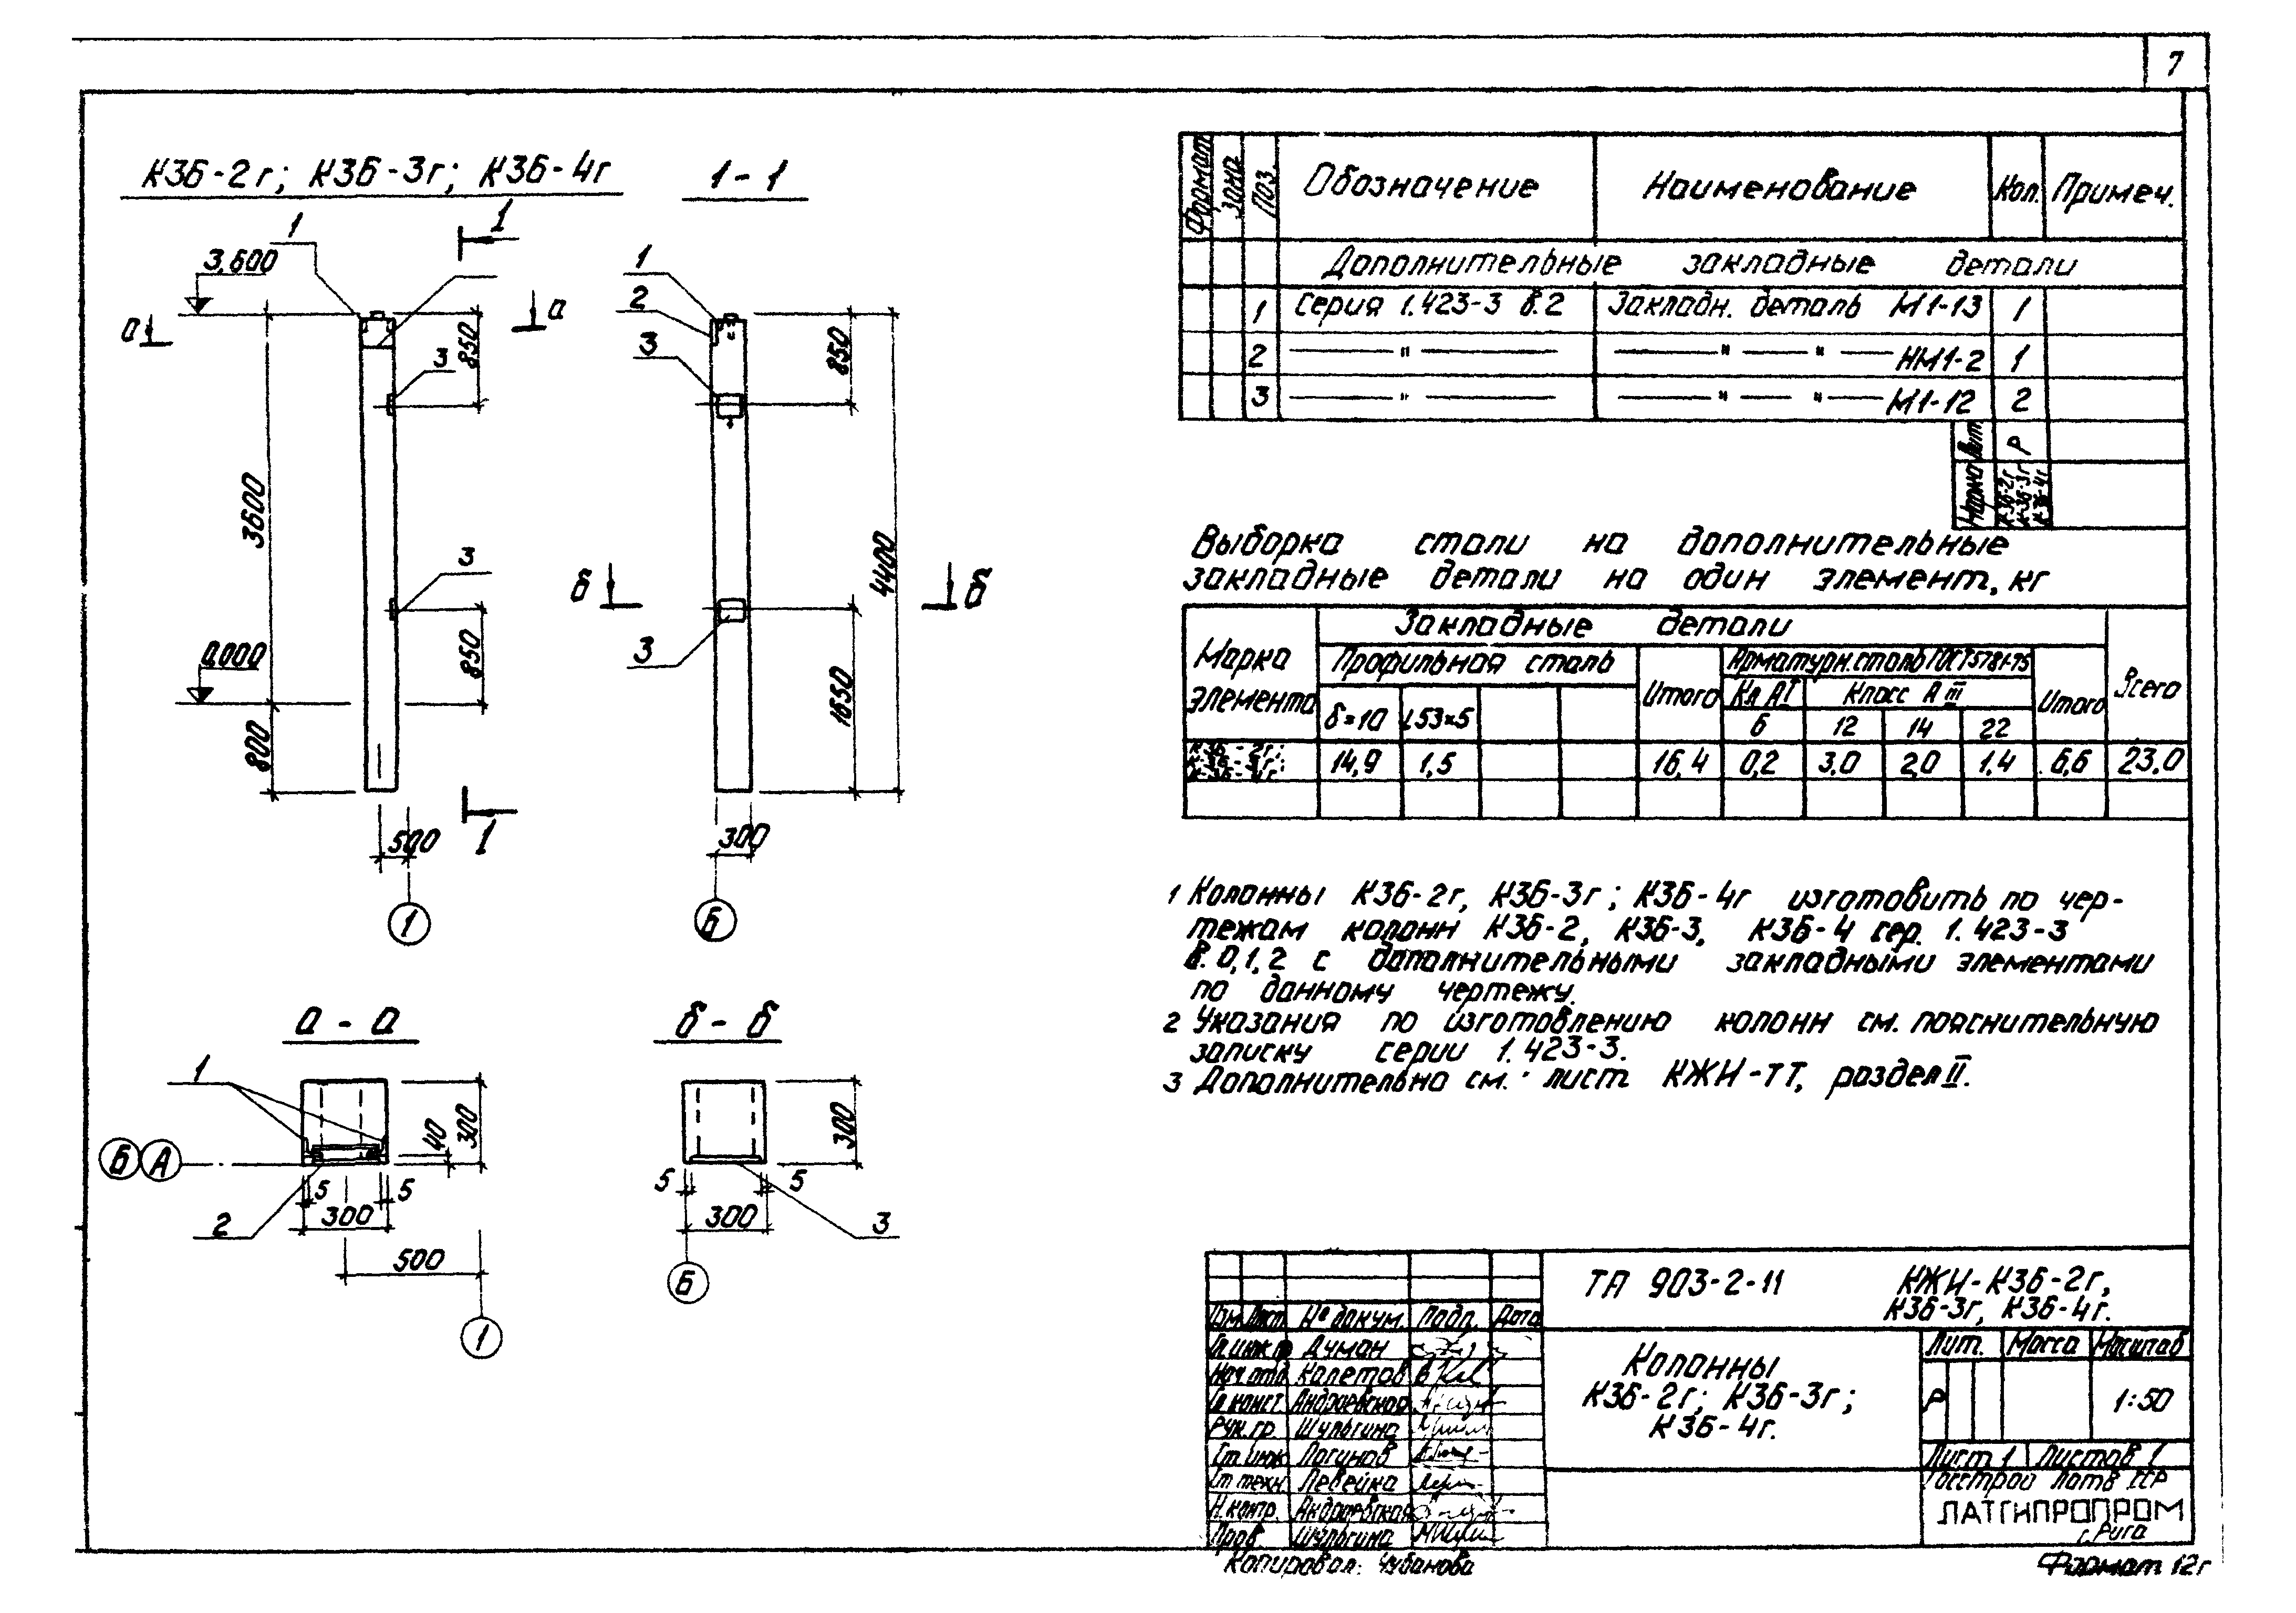 7
К3Б-2г; К3Б-3г; К3Б-4г
1-1
1
1
3,600
а
а
850
3
3600
3
0.000
850
800
500
1
1
1
2
3
850
4400
б
б
3
1650
300
Б
а - а
1
Б А
40
300
5
5
2
300
500
1
б - б
300
5
5
300
3
Б
Формат Зона Поз. Обозначение Наименование Кол. Примеч.
Дополнительные закладные детали
1 Серия 1.423-3 в.2 Закладн. деталь М1-13 1
2 — " — — " — " — НМ1-2 1
3 — " — — " — " — М1-12 2
Лит Р
Марка К3Б-2г К3Б-3г К3Б-4г
Выборка стали на дополнительные
закладные детали на один элемент, кг
Марка элемента Закладные детали Всего
Профильная сталь Итого Арматурн. сталь ГОСТ 5781-75 Итого
δ=10 L53×5 Кл АI Класс А III
6 12 14 22
К3Б-2г; К3Б-3г; К3Б-4г 14,9 1,5 16,4 0,2 3,0 2,0 1,4 6,6 23,0
1 Колонны К3Б-2г, К3Б-3г; К3Б-4г изготовить по чер-
тежам колонн К3Б-2, К3Б-3, К3Б-4 сер. 1.423-3
в. 0,1,2 с дополнительными закладными элементами
по данному чертежу.
2 Указания по изготовлению колонн см. пояснительную
записку серии 1.423-3.
3 Дополнительно см. лист КЖИ-ТТ, раздел II.
ТА 903-2-11 КЖИ-К3Б-2г,
К3Б-3г, К3Б-4г.
Изм. Лист № докум. Подп. Дата
Гл.инж.п Думан
Нач.отд Калетов
Гл.конст. Андраевская
Рук.гр. Шульгина
Ст.инж Логинов
Ст техн. Левейка
Н.контр. Андраевская
Пров. Шульгина
Колонны
К3Б-2г; К3Б-3г;
К3Б-4г.
Лит. Масса Масштаб
Р 1:50
Лист 1 Листов 1
Госстрой Латв ССР
ЛАТГИПРОПРОМ
г.Рига
Копировал: Чубанова
Формат 12г